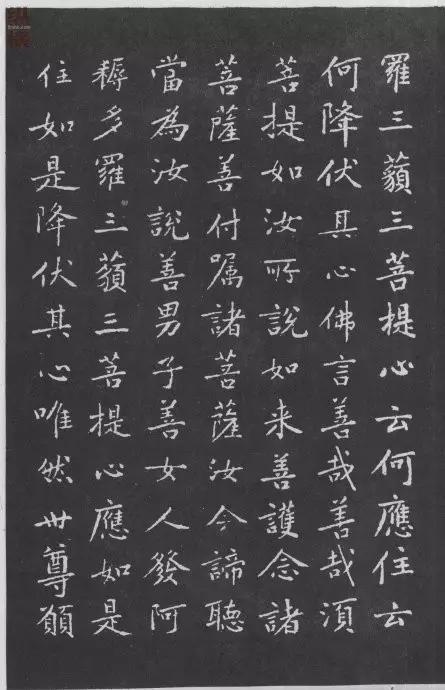 羅三藐三菩提心云何應住云
何降伏其心佛言善哉善哉須
菩提如汝所說如来善護念諸
菩薩善付嘱諸菩薩汝今諦聽
當為汝說善男子善女人發阿
耨多羅三藐三菩提心應如是
住如是降伏其心唯然世尊願